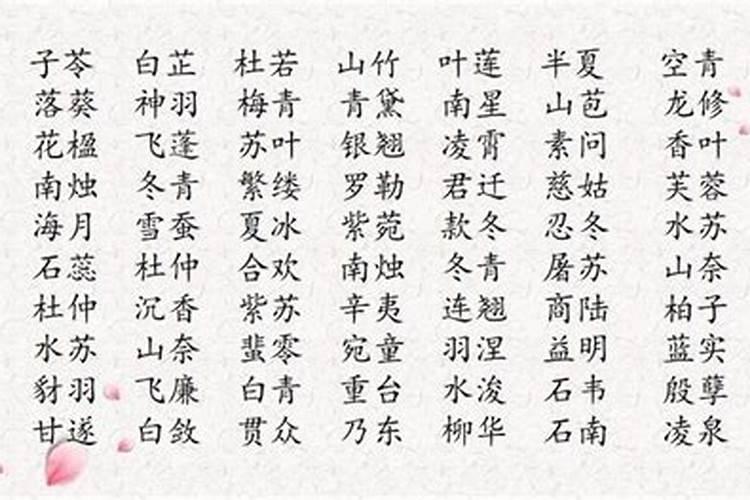 子苓 白芷 杜若 山竹 叶莲 半夏 空青
落葵 神羽 梅青 青黛 南星 山苞 龙修
花楹 飞蓬 苏叶 银翘 凌霄 素问 香叶
南烛 冬青 繁缕 罗勒 君迁 慈姑 芙蓉
海月 雪蚕 夏冰 紫菀 款冬 忍冬 水苏
石蕊 杜仲 合欢 南烛 冬青 屠苏 山奈
杜仲 沉香 紫苏 辛夷 连翘 商陆 柏子
水苏 山奈 蜚零 宛童 羽涅 益明 蓝实
豺羽 飞廉 白青 重台 水浚 石韦 殷孽
甘遂 白敛 贯众 乃东 柳华 石南 凌泉